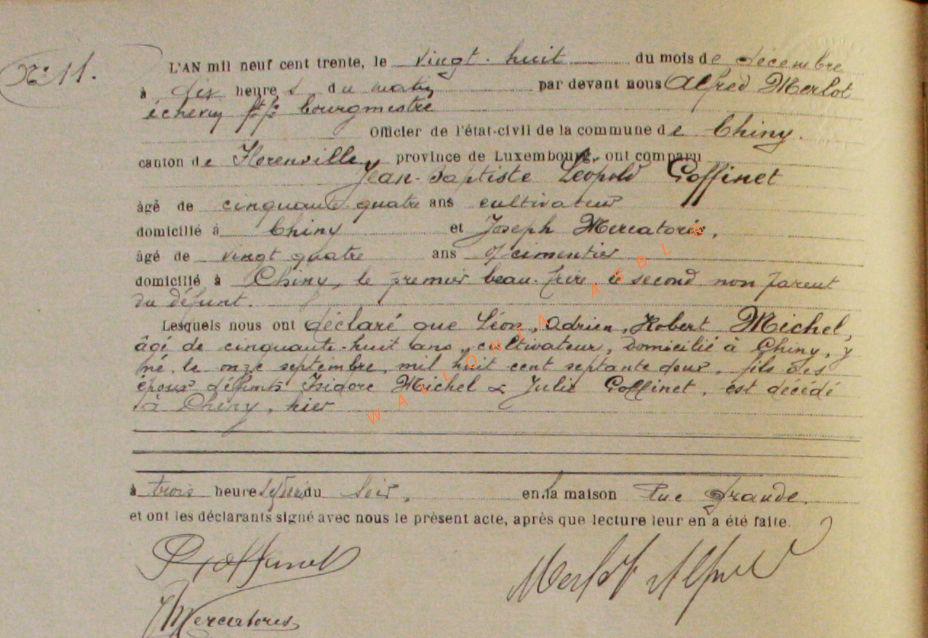 N° 11.
L'AN mil neuf cent trente, le vingt-huit du mois de décembre
à dix heures du matin par devant nous Alfred Merlot
échevin ff de bourgmestre
Officier de l'état-civil de la commune de Chiny.
canton de Florenville, province de Luxembourg, ont comparu
Jean-Baptiste Léopold Goffinet
âgé de cinquante quatre ans cultivateur
domicilié à Chiny et Joseph Mercatoris,
âgé de vingt quatre ans cimentier
domicilié à Chiny, le premier beau-frère, le second non parent
du défunt.
Lesquels nous ont déclaré que Léon, Adrien, Hobert Michel,
âgé de cinquante-huit ans, cultivateur, domicilié à Chiny, y
né, le onze septembre, mil huit cent septante deux, fils des
époux défunts Isidore Michel & Julie Goffinet, est décédé
à Chiny, hier
à trois heures du soir, en la maison Rue Grande.
et ont les déclarants signé avec nous le présent acte, après que lecture leur en a été faite.
Goffinet Merlot Alfred
J Mercatoris
WALLONIA ASBL ©